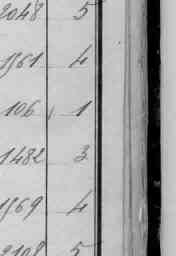 2048 5
1961 4
106 1
1482 3
1969 4
2108 5